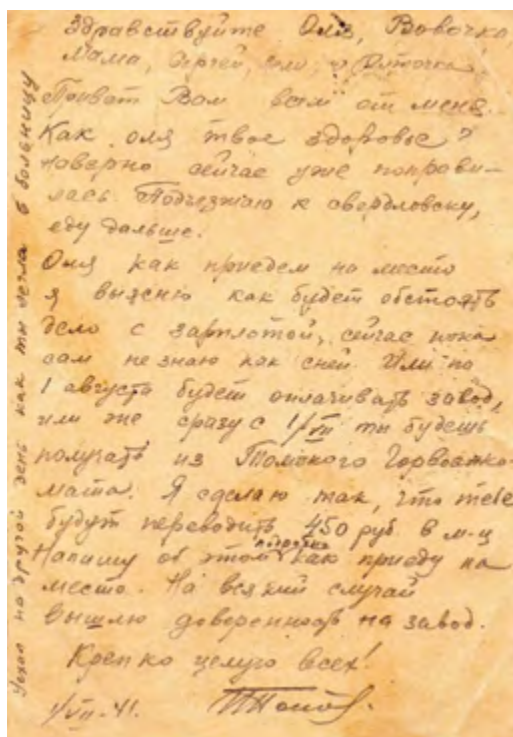 Здравствуйте Оля, Вовочка,
Мама, Сергей, и
Привет Вам всем от меня.
Как Оля твое здоровье?
Наверно сейчас уже поправи-
лась. Подъезжаю к свердловску,
еду дальше.
Оля как приедем на место
я выясню как будет обстоять
дело с зарплотой, сейчас пока
сам не знаю как с ней. Или по
1 августа будет оплачивать завод,
или же сразу с 1/VII ты будешь
получать из Томского Горвоенко-
мата. Я сделаю так, что тебе
будут переводить 450 руб. в м-ц
Напишу об этом подробно как приеду на
место. На всякий случай
вышлю доверенность на завод.
Крепко целую всех!
1/VII-41.
Уехал на другой день как ты легла в больницу